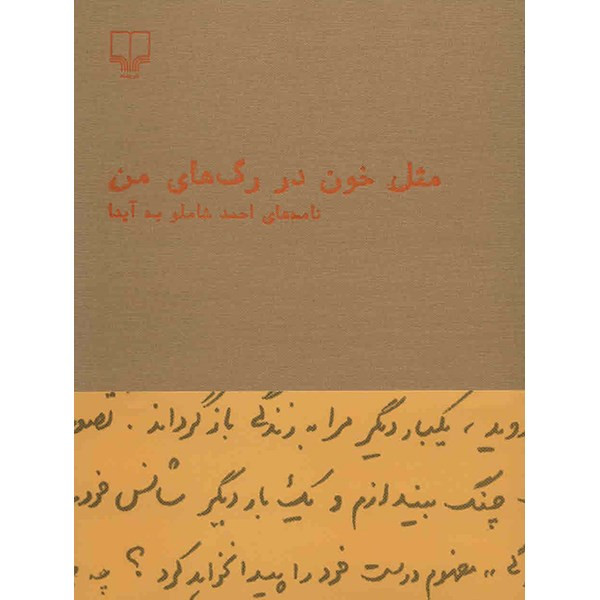 مثل خون در رگ‌های من
نامه‌های احمد شاملو به آیدا
روید، یکبار دیگر مرا به زندگی باز گرداند. تصو
چنگ بیندازم و یک بار دیگر شانس خود
گی" مفهوم درست خود را پیدا نخواهد کرد؟ چه